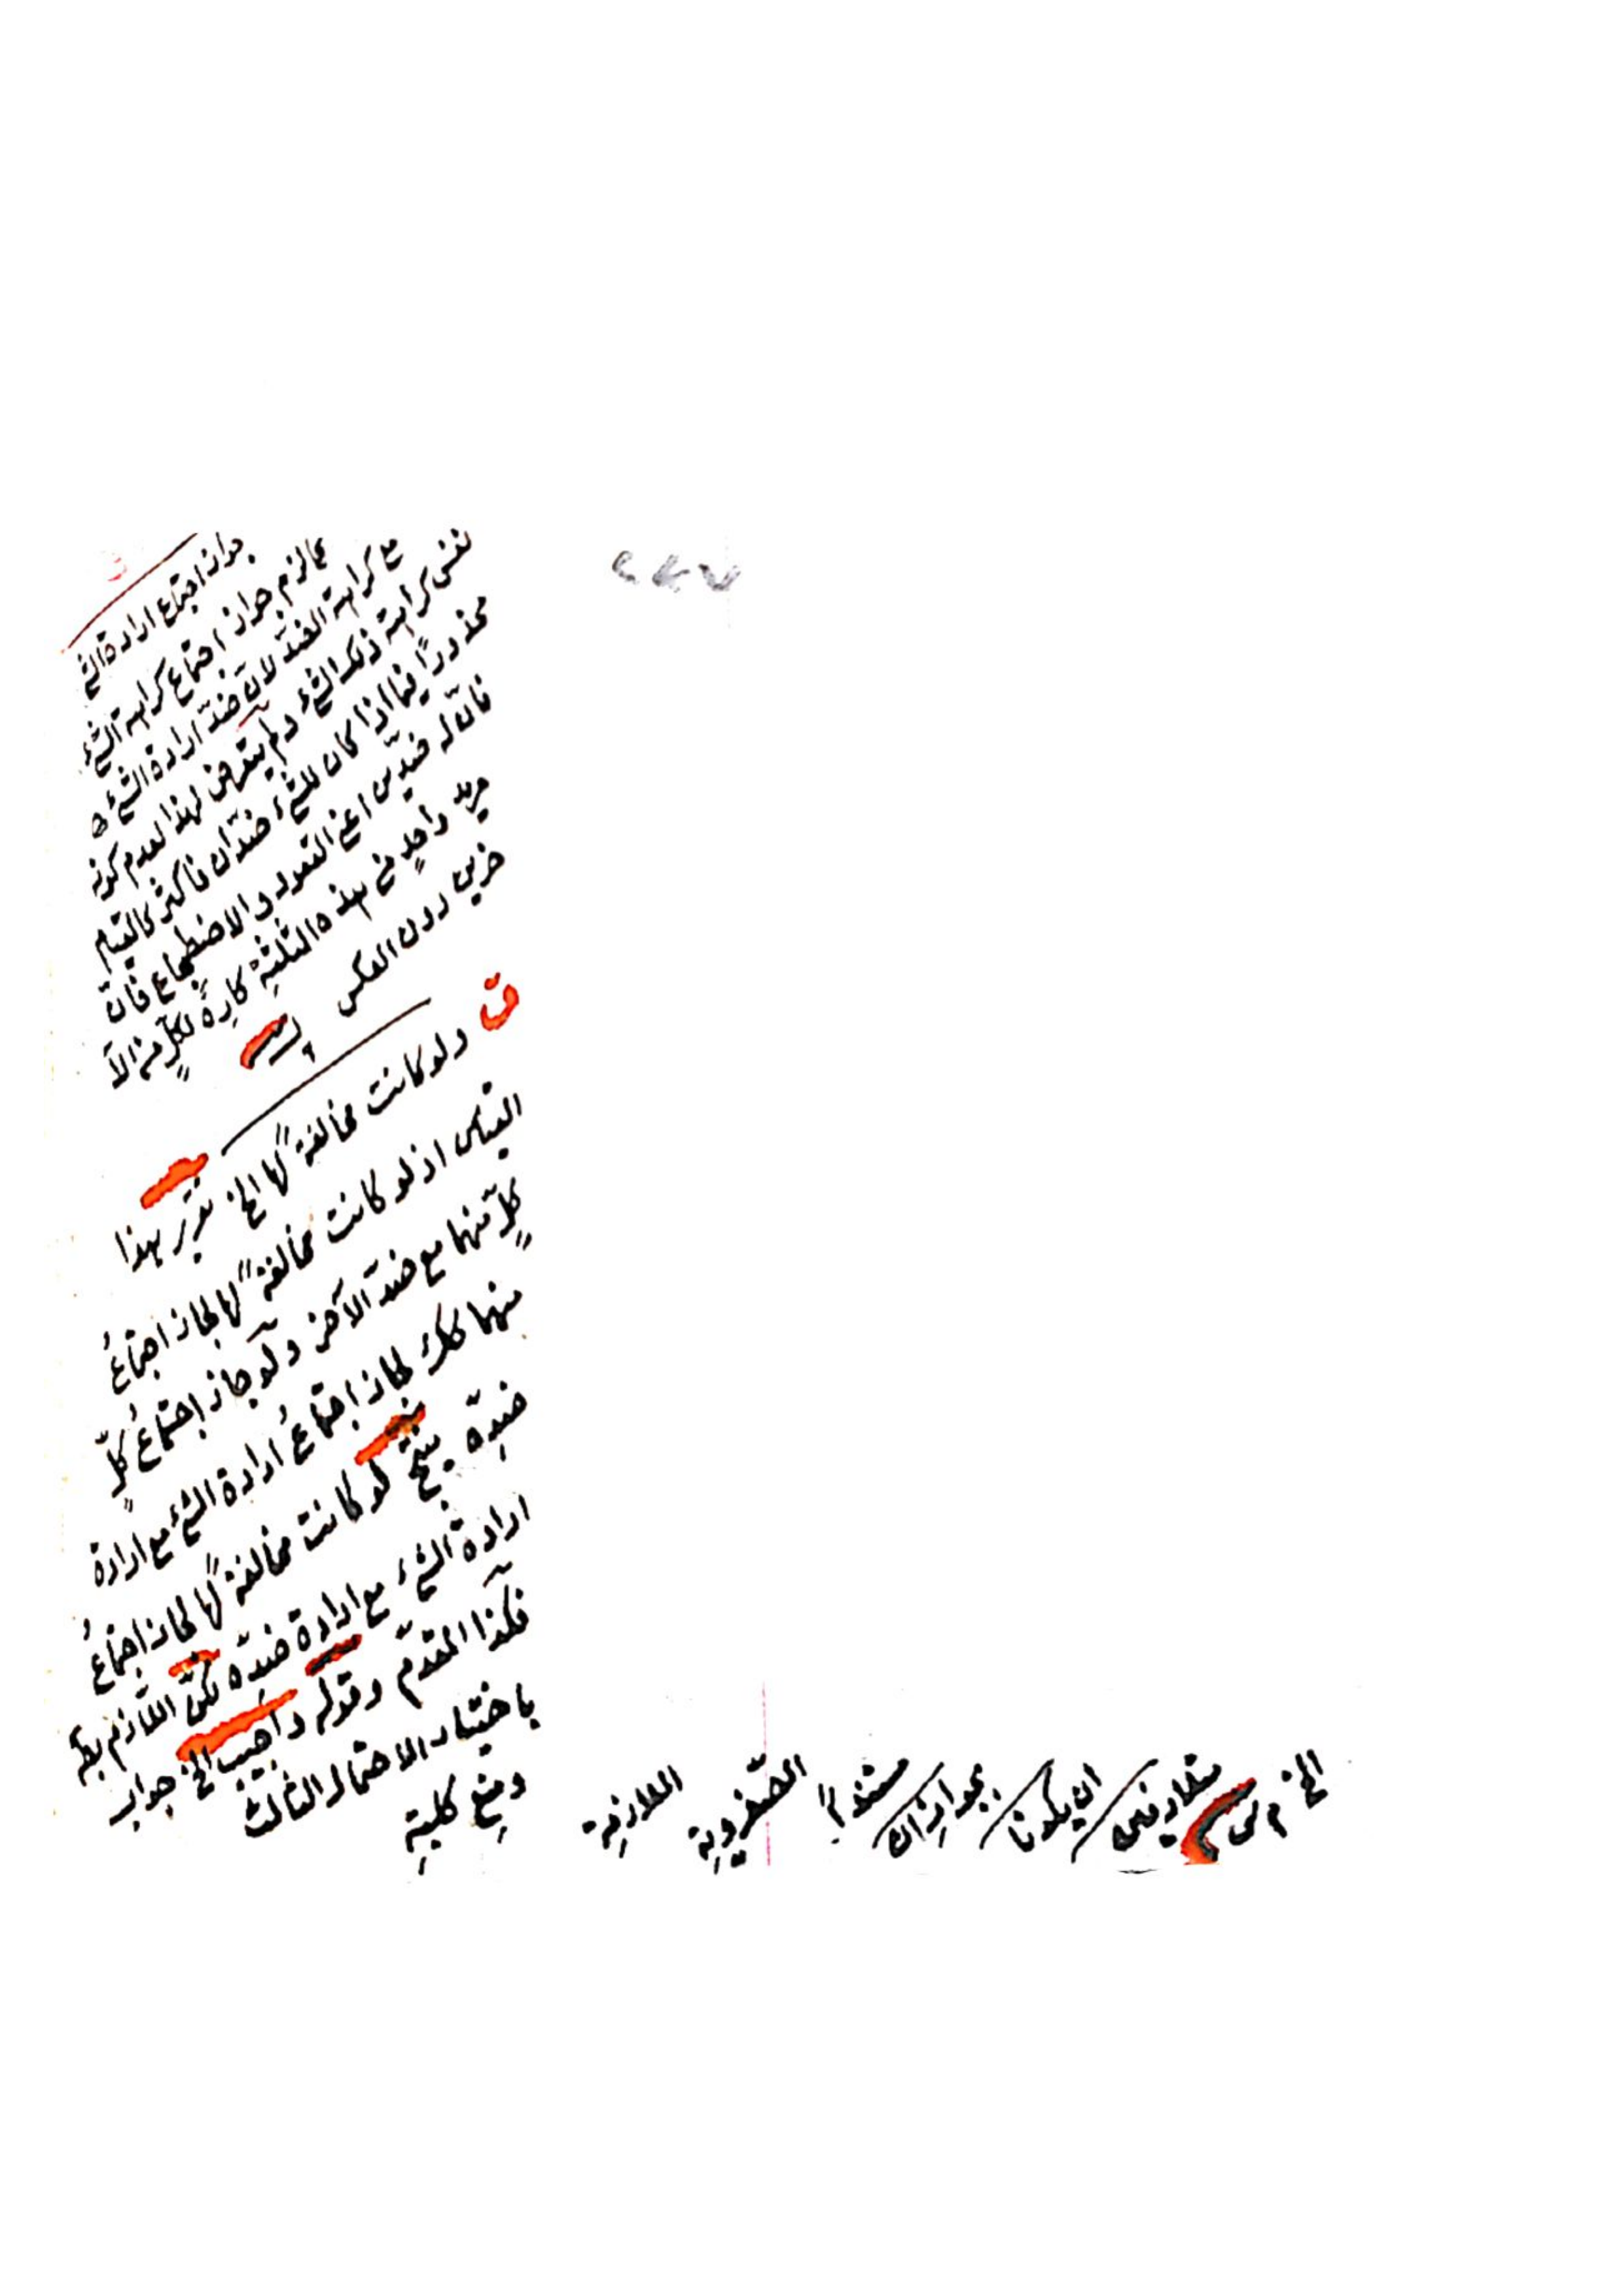 ٢٤٧
جواز اجتماع ارادة الشئ
كما لزم جواز اجتماع كراهة الشئ
مع كراهة الضد لان ضد ارادة الشئ هو
نفس كراهة ذلك الشئ ولم يتعرض لهذا لعدم كونه
محذورًا فيما اذا كان للشئ ضدان فاكثر كالقيام
فانّ له ضدين اعني القعود والاضطجاع فان
مريد واحدٍ من هذه الثلثة كارهٌ لكلٍ من الآ
خرين دون العكس
ق ولو كانت مخالفةً لها الخ تقرير هذا
القياس انه لو كانت مخالفةً لها لجاز اجتماعُ
كلٍّ منهما مع ضد الآخر ولو جاز اجتماعُ كلٍّ
منهما كك لجاز اجتماعُ ارادة الشئ مع ارادة
ضده ينتج لو كانت مخالفةً لها لجاز اجتماعُ
ارادة الشئ مع ارادة ضده لكنّ اللازم بط
فكذا المقدّم وقوله واجيب الخ جواب
باختيار الاحتمال الثالث
ومنع كلية
الملازمة
الصغروية
مستندًا
بجواز ان
ان يكونا
متلازمين
الخ